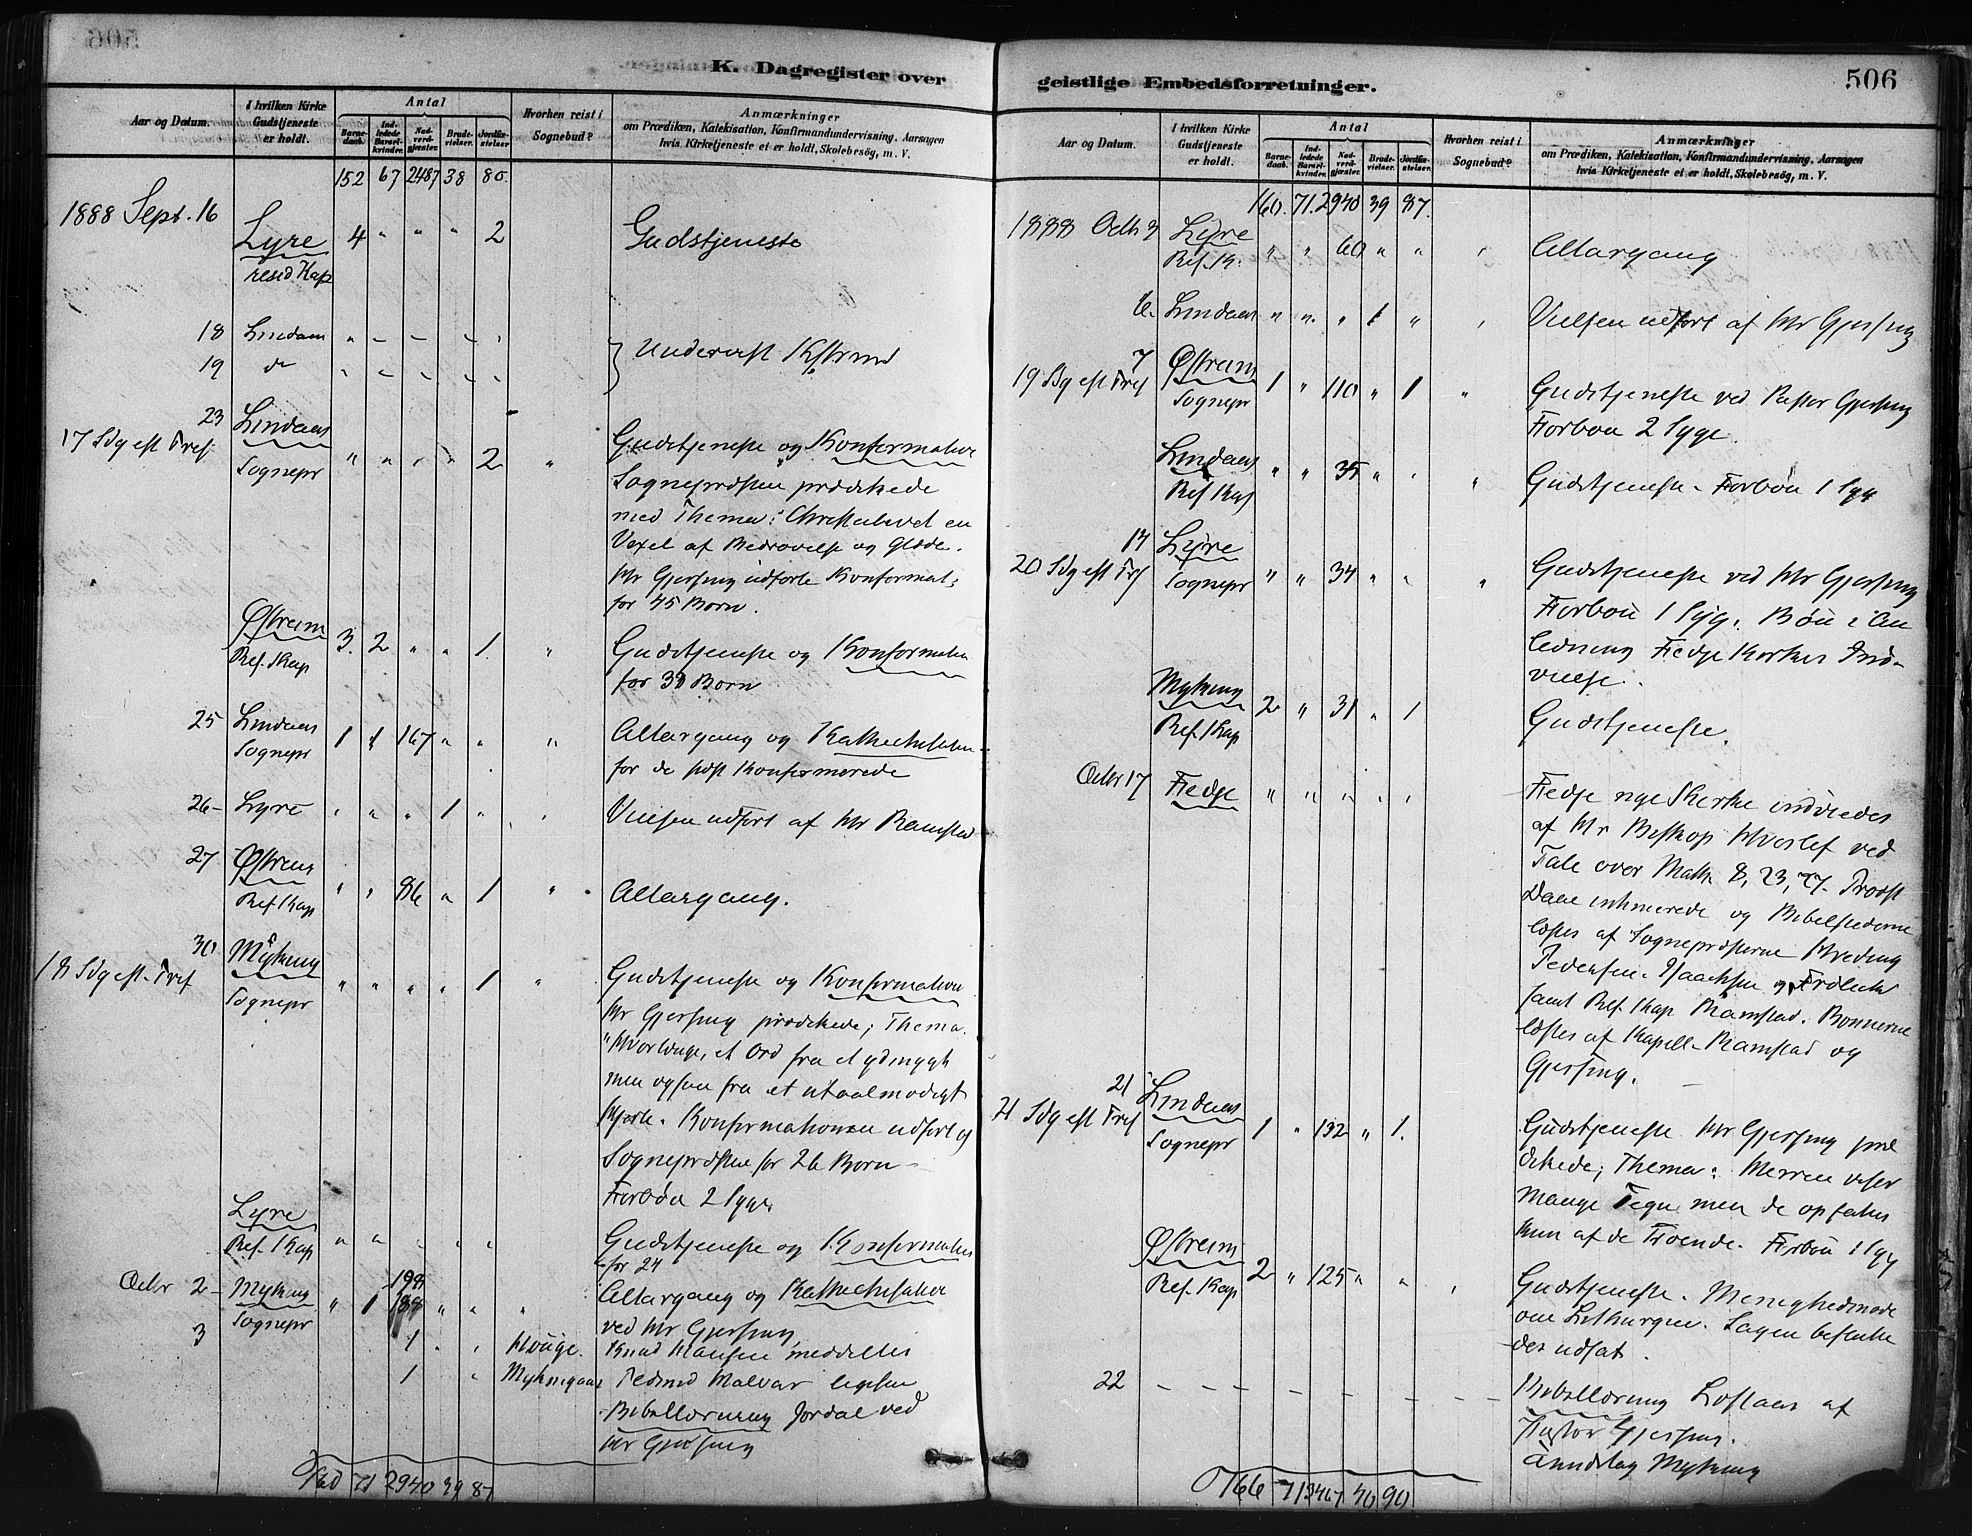 K. Dagregister over
Aar og Datum.
I hvilken Kirke Gudstjeneste er holdt.
Antal
Barnedaab.
Indledede Barselkvinder.
Nadverdgjæster.
Brudevielser.
Jordfæstelser
Hvorhen reist i Sognebud?
Anmærkninger
om Prædiken, Katekisation, Konfirmandundervisning, Aarsagen
hvis Kirketjeneste et er holdt, Skolebesög, m. V.
152 67 2487 38 80.
1888 Sept. 16
Lyre 4 " " " 2 Gudstjeneste
resid Kap
18 Lindaas " - - - -
19 do " " " " " Undervist Kfirmd
23 Lindaas
17 Sdg eft Tref. Sognepr " " " " 2 " Gudstjeneste og Konfirmation
Sognepræsten prædikede
med Thema: Christenlivet en
Vexel af Bedrøvelse og Glæde.
Hr Gjersing udførte Konfirmat.
for 45 Børn.
Østrem 3. 2 " " 1. " Gudstjeneste og Konfirmation
Res. Kap for 31 Børn
25 Lindaas
Sognepr 1 1 167 " " " Altergang og Kathechisation
for de sidst Konfirmerede
26- Lyre " " " 1 " " Vielsen udført af Hr Ramstad
27 Østrem
Res Kap " " 86 " 1 " Altergang.
30 Myking
18 Sdg eft. Tref Sognepr " " " " 1 " Gudstjeneste og Konfirmation
Hr Gjersing prædikede; Thema.
"Hvorlænge, et Ord fra et ydmygt
men ogsaa fra et utaalmodigt
Hjerte. Konfirmationen udført af
Sognepræsten for 26 Børn -
Forbøn 2 Syge
Lyre
Res. Kap " " " " " Gudstjeneste og Konfirmation
for 24
Octbr 2- Myking 198
Sognepr " 1 188 " " " Altergang og Kathechisation
ved Hr Gjersing
3 1 " " Hodge. Knud Hansen meddeltes
1 " Pedmd Halvar ligesaa
Bibellæsning Jordal ved
Hr Gjersing
160 71 2940 39 87
geistlige Embedsforretninger.
506
Aar og Datum.
I hvilken Kirke Gudstjeneste er holdt.
Antal
Barnedaab.
Indledede Barselkvinder.
Nadverdgjæster.
Brudevielser.
Jordfæstelser.
Hvorhen reist i Sognebud?
Anmærkninger
om Prædiken, Katekisation, Konfirmandundervisning, Aarsagen
hvis Kirketjeneste et er holdt, Skolebesög, m. V.
160. 71. 2940 39 87.
1888 Octb Lyre
Res. K. " " 60 " " " Altargang
6. Lindaas " " " 1 " " Vielsen udført af Hr Gjersing
7 Østrem
19 Sdg eft Tref Sognepr 1 " 110 " 1 " Gudstjeneste ved Pastor Gjersing
Forbøn 2 Syge.
Lindaas
Res Kap " " 35 " " " Gudstjeneste. Forbøn 1 Syg
14 Lyre
20 Sdg eft Tref Sognepr " " 34 " " " Gudstjeneste ved Hr Gjersing
Forbøn 1 Syg. Bøn i An
ledning Fedje Kirkes Ind-
vielse.
Myking
Res. Kap 2 " 31 " 1 Gudstjeneste.
Octbr 17 Fedje " " " " " Fedje nye Kirke indviedes
af Hr Biskop Hvoslef ved
Tale over Math. 8, 23, 27. Provst
Daae intimerede og Bibelstederne
læstes af Sognepræsterne Hveding
Pedersen. Isaachsen og Frölich
samt Res. Kap Ramstad. Bønnerne
læstes af Kapell. Ramstad og
Gjersing.
21 Lindaas
21 Sdg eft Tref Sognepr 1 " 132 " 1. Gudstjeneste Hr Gjersing præ
dikede; Thema: Herren viser
mange Tegn, men de opfattes
kun af de Troende. Forbøn 1 Syg
Østrem
Res. Kap 2 " 125 " " " Gudstjeneste. Menighedsmøde
om Lithurgien. Sagen beslutte
des udsat.
22 - - - - - - Bibellæsning Loftaas af
Pastor Gjersing.
Myking
166 71 3467 40 90